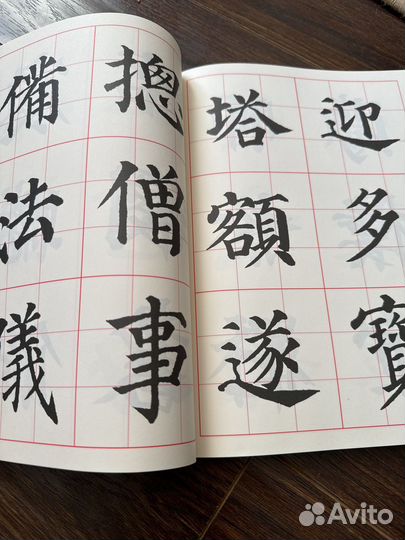 迎多寶
塔額遂
摠僧事
備法儀
Avito